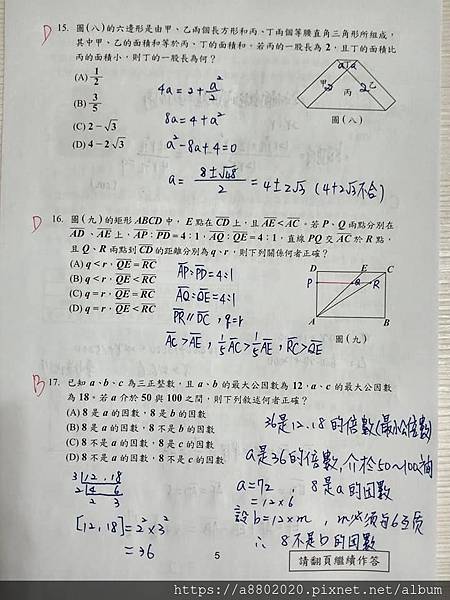 D 15. 圖(八)的六邊形是由甲、乙兩個長方形和丙、丁兩個等腰直角三角形所組成，
其中甲、乙的面積和等於丙、丁的面積和。若丙的一股長為 2，且丁的面積比
丙的面積小，則丁的一股長為何？
(A) 1/2
(B) 3/5
(C) 2－√3
(D) 4－2√3
4a = 2 + a²/2
8a = 4 + a²
a² - 8a + 4 = 0
a = (8±√48)/2 = 4±2√3 (4+2√3不合)
a a
甲 2 丙 2 乙
圖(八)
D 16. 圖(九)的矩形 ABCD 中，E 點在 CD 上，且 AE < AC。若 P、Q 兩點分別在
AD、AE 上，AP：PD = 4：1，AQ：QE = 4：1，直線 PQ 交 AC 於 R 點，
且 Q、R 兩點到 CD 的距離分別為 q、r，則下列關係何者正確？
(A) q < r，QE = RC
(B) q < r，QE < RC
(C) q = r，QE = RC
(D) q = r，QE < RC
AP：PD = 4：1
AQ：QE = 4：1
PR // DC，q = r
AC > AE，1/5 AC > 1/5 AE，RC > QE
D E C
P Q R
A B
圖(九)
B 17. 已知 a、b、c 為三正整數，且 a、b 的最大公因數為 12，a、c 的最大公因數
為 18。若 a 介於 50 與 100 之間，則下列敘述何者正確？
(A) 8 是 a 的因數，8 是 b 的因數
(B) 8 是 a 的因數，8 不是 b 的因數
(C) 8 不是 a 的因數，8 是 c 的因數
(D) 8 不是 a 的因數，8 不是 c 的因數
36是12、18的倍數(最小公倍數)
a是36的倍數，介於50~100間
a = 72，8是a的因數
= 12×6
設 b = 12×m，m必須與6互質
∴ 8不是b的因數
3 | 12，18
2 | 4 6
2 3
[12，18] = 2²×3²
= 36
5
請翻頁繼續作答
https://a8802020.pixnet.net/album